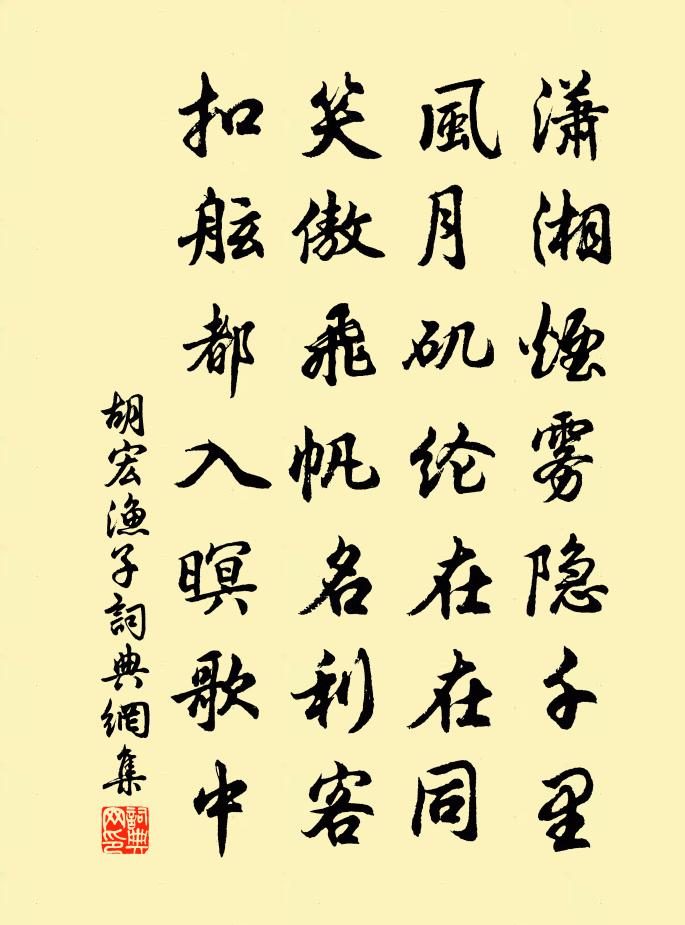 瀟湘煙雾隐千里
風月矶纶在在同
笑傲飛帆名利客
扣舷都入暝歌中
胡宏漁子詞典網集
詞典網印